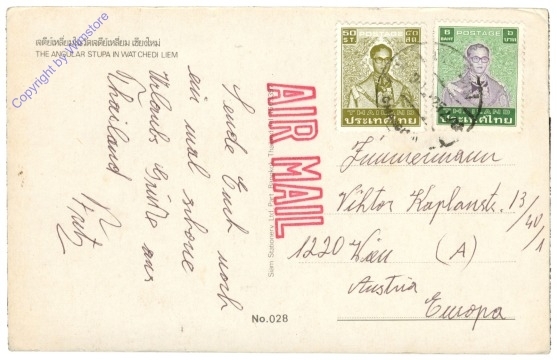 Copyright by Wmstore
เจดีย์เหลี่ยมในวัดเจดีย์เหลี่ยม เชียงใหม่
THE ANGULAR STUPA IN WAT CHEDI LIEM
50 ST.
POSTAGE
๕๐ สต.
THAILAND
ประเทศไทย
6 BAHT
POSTAGE
๖ บาท
THAILAND
ประเทศไทย
AIR MAIL
Sende Euch noch
ein mal schöne
Urlaubs Grüße aus
Thailand
Siam Stationery Ltd. Part.
No.028
Zimmermann
Viktor Kaplanstr. 13/40/1
1220 Wien (A)
Austria
Europa